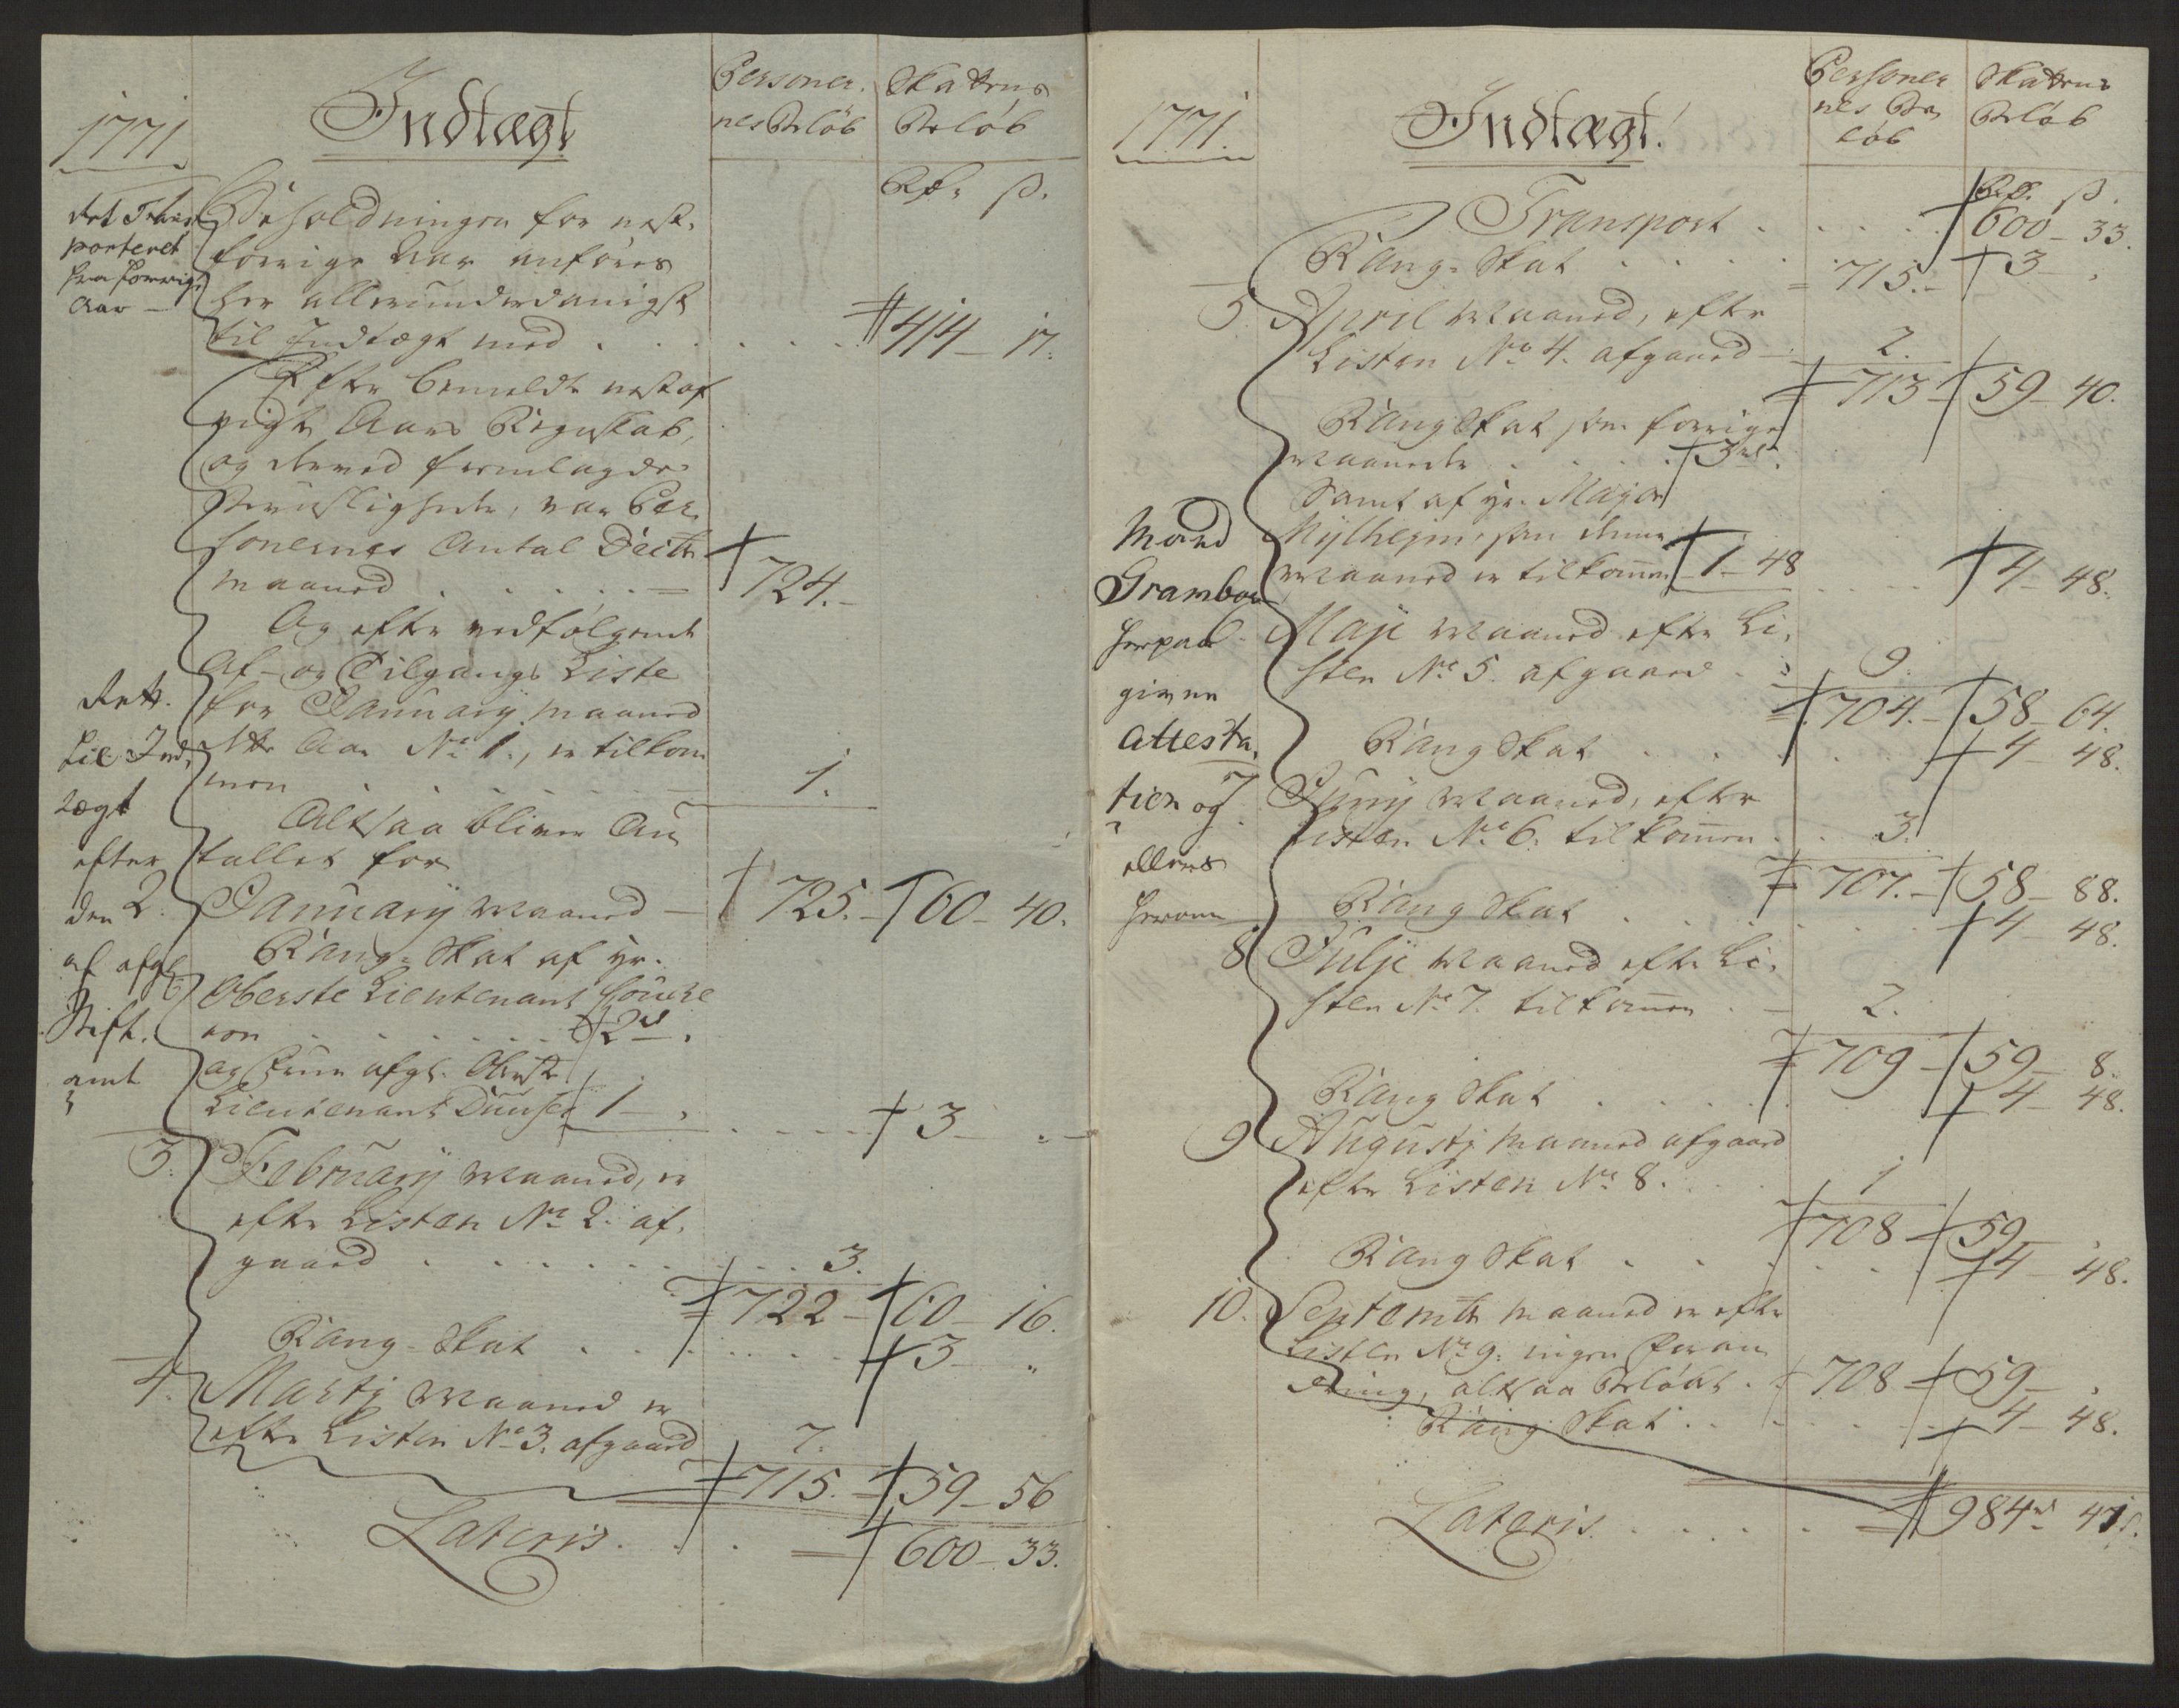 1771
Indtægt
Personer-
nes Beløb
Skattens
Beløb
Rdr ß.
ret Trans
porteret
fra forrige
Aar
Beholdningen for nest-
forrige Aar anføres
her allerunderdanigst
til Indtægt med . . . . . 414 - 17.
Efter bemeldte nest af
vigte Aars Regnskab,
og derved fremlagde
Beviisligheder, var Per-
sonernes Antal Decitr
maaned . . . . . 724.
Og efter vedfølgende
Af- og Tilgangs Liste
for January maaned
dette Aar No 1., er tilkom
men . . . . . 1.
Altsaa bliver An
tallet for
January Maaned - 725. - 60 - 40.
Rang-Skat af Hr.
Oberste Lieutenant
. . . . . 2 rd .
og Frue afgl. Oberste
Lieutenant 1 - . . . . 3 - .
Rett.
til Ind-
tægt
efter
den 2.
af afgl
Stift-
amt
3. February Maaned, er
efter Listen No 2. af-
gaaed . . . . . 3.
722 - 60 - 16.
Rang-Skat . . . . . 3 - "
4. Martj Maaned er
efter Listen No 3. afgaaed 7.
715. - 59 - 56
Lateris . . . 600 - 33.
1771.
Indtægt.
Persone
nes Be
løb
Skattens
Beløb
Rdr. ß.
Transport . . . . . 600 - 33.
Rang-Skat . . . . . 715. - 3 - .
5. April Maaned, efter
Listen No 4. afgaaed - 2.
713 - 59 - 40.
Rang Skat som forrige
Maaneder . . . . 3 rd.
Samt af Hr. Major
Mylhejm, som denne
Maaned er tilkommen 1 - 48 . . . 4 - 48.
6. Maji Maaned efter Li-
sten No 5. afgaaed . . 9.
704. - 58 - 64.
Rang Skat . . . . . 4 - 48.
7. Junij Maaned, efter
Listen No 6. tilkommen . . 3.
707. - 58 - 88.
Rang Skat . . . . . 4 - 48.
8 Julji Maaned efter Li-
sten No 7. tilkommen . - 2.
709 - 59 - 8.
Rang Skat . . . . . 4 - 48.
9 Augustj Maaned afgaaed
efter Listen No 8. . . . 1
708 - 59 - .
Rang Skat . . . . . 4 - 48.
10. Septembr Maaned er efter
Listen No 9. ingen Foran
dring, altsaa Beløbet . . 708 - 59 - .
Rang Skat . . . . . 4 - 48.
Lateris . . . . . 984 rd 41 ß.
herpaa
given
Attesta-
tion og
ellers